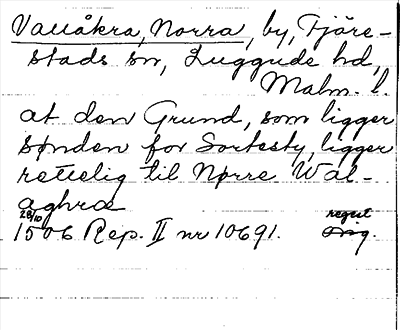 Vallåkra, Norra, by, Fjäre-
stads sn, Luggude hd,
Malm. l.
at den Grund, som ligger
sønden for Sortesty, ligger
rettelig til Nørre Wal-
aghra
28/10
1506 Rep. II nr 10691. regest
orig.